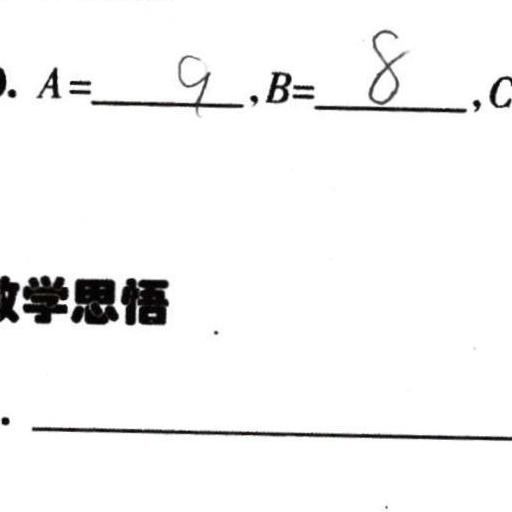 . A= 9 ,B= 8 ,C
学思悟
.